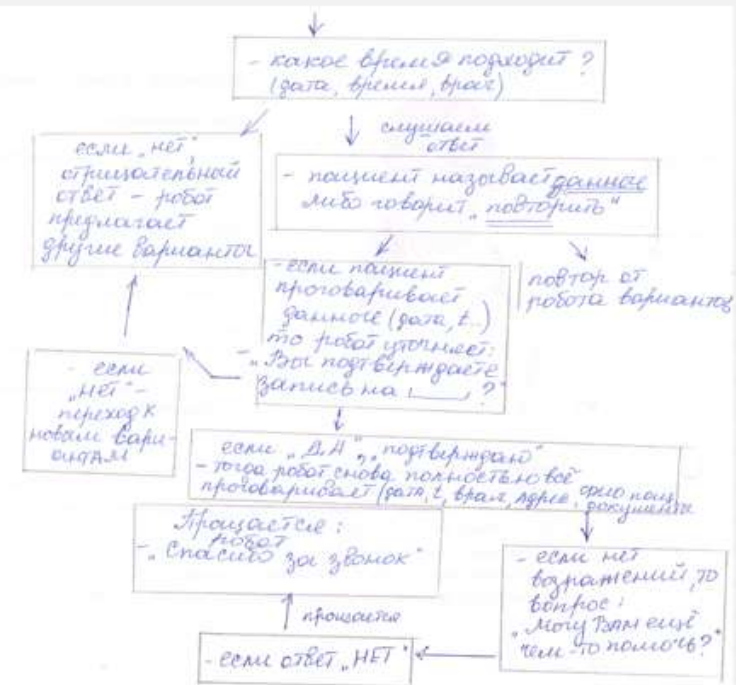 - какое время подходит?
(дата, время, врач)
слушаем
ответ
если „нет",
отрицательный
ответ - робот
предлагает
другие варианты
- пациент называет данные
либо говорит „повторить"
повтор от
робота вариантов
- если пациент
проговаривает
данные (дата, t..)
то робот уточняет:
- „Вы подтверждаете
запись на ____?"
- если
„НЕТ" -
переход к
новым вари-
антам
если „ДА", „подтверждаю"
- тогда робот снова полностью всё
проговаривает (дата, t, врач, адрес, фио пац., документы
- если нет
возражений, то
вопрос:
„Могу Вам ещё
чем-то помочь?"
- если ответ „НЕТ"
прощается
Прощается:
робот
- „Спасибо за звонок"